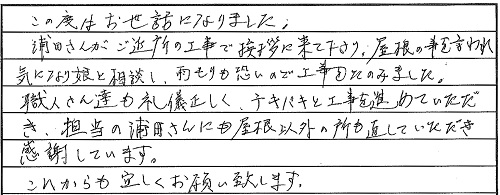 この度はお世話になりました。
浦田さんがご近所の工事で挨拶に来て下さり、屋根の事を言われ
気になり娘と相談し、雨もりも恐いので工事をたのみました。
職人さん達も礼儀正しく、テキパキと工事を進めていただ
き、担当の浦田さんにも屋根以外の所も直していただき
感謝しています。
これからも宜しくお願い致します。